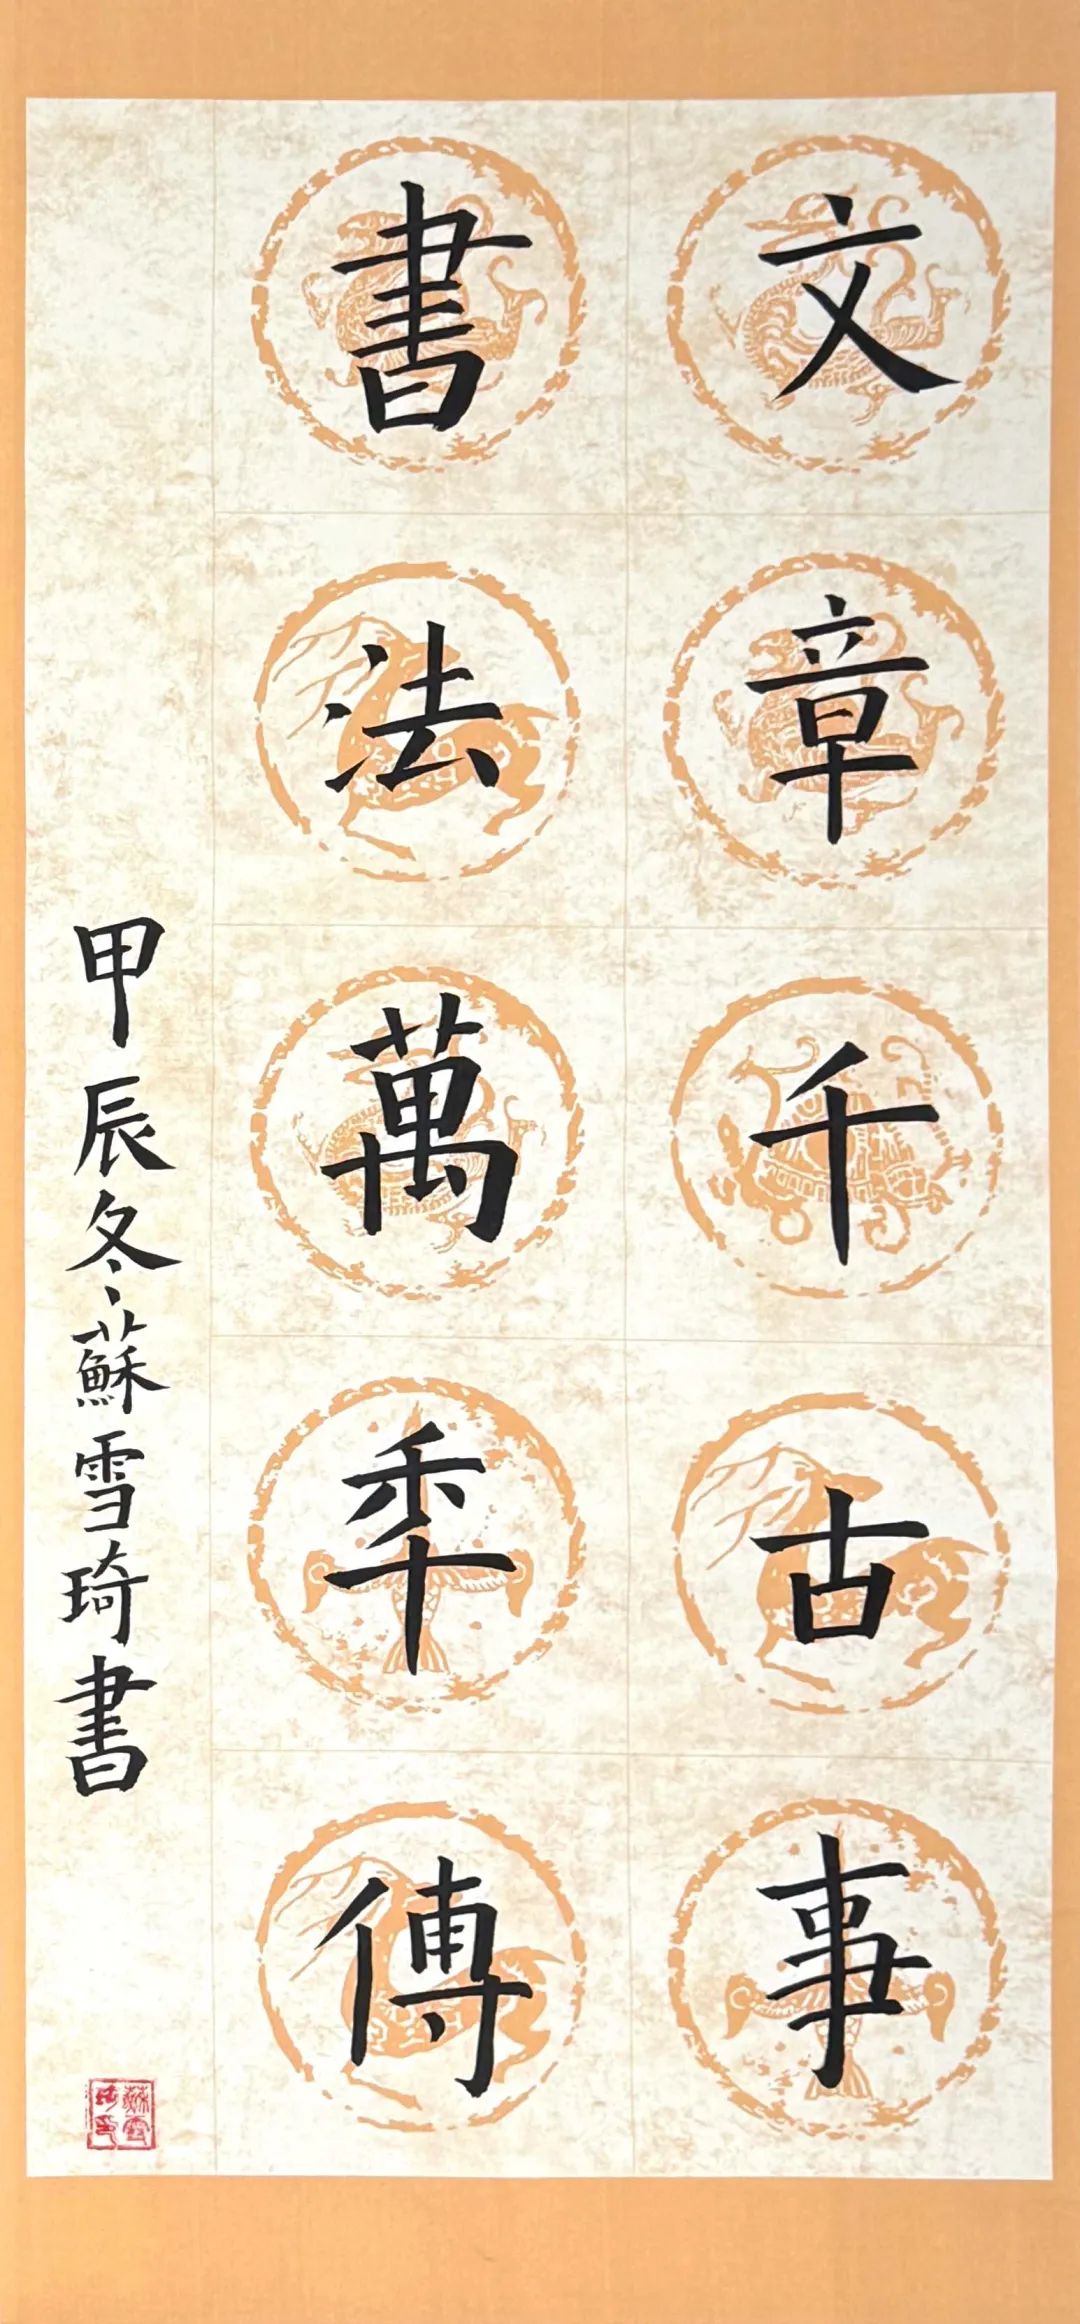 文章千古事
書法萬秊傳
甲辰冬蘇雪琦書